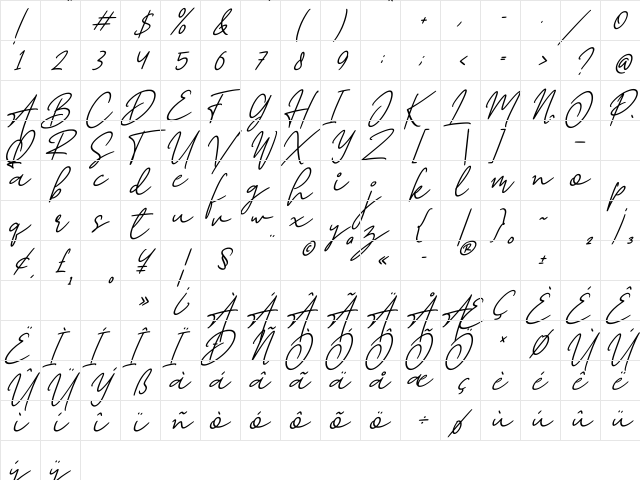 ! # $ % & ( ) + , - . / 0
1 2 3 4 5 6 7 8 9 : ; < = > ? @
A B C D E F G H I J K L M N O P
Q R S T U V W X Y Z [ \ ] _
a b c d e f g h i j k l m n o p
q r s t u v w x y z { | } ~ ² ³
¢ £ ¥ ¦ § ¨ © ª « - ® ° ±
¸ ¹ º » ¿ À Á Â Ã Ä Å Æ Ç È É Ê
Ë Ì Í Î Ï Ð Ñ Ò Ó Ô Õ Ö × Ø Ù Ú
Û Ü Ý ß à á â ã ä å æ ç è é ê ë
ì í î ï ñ ò ó ô õ ö ÷ ø ù ú û ü
ý ÿ